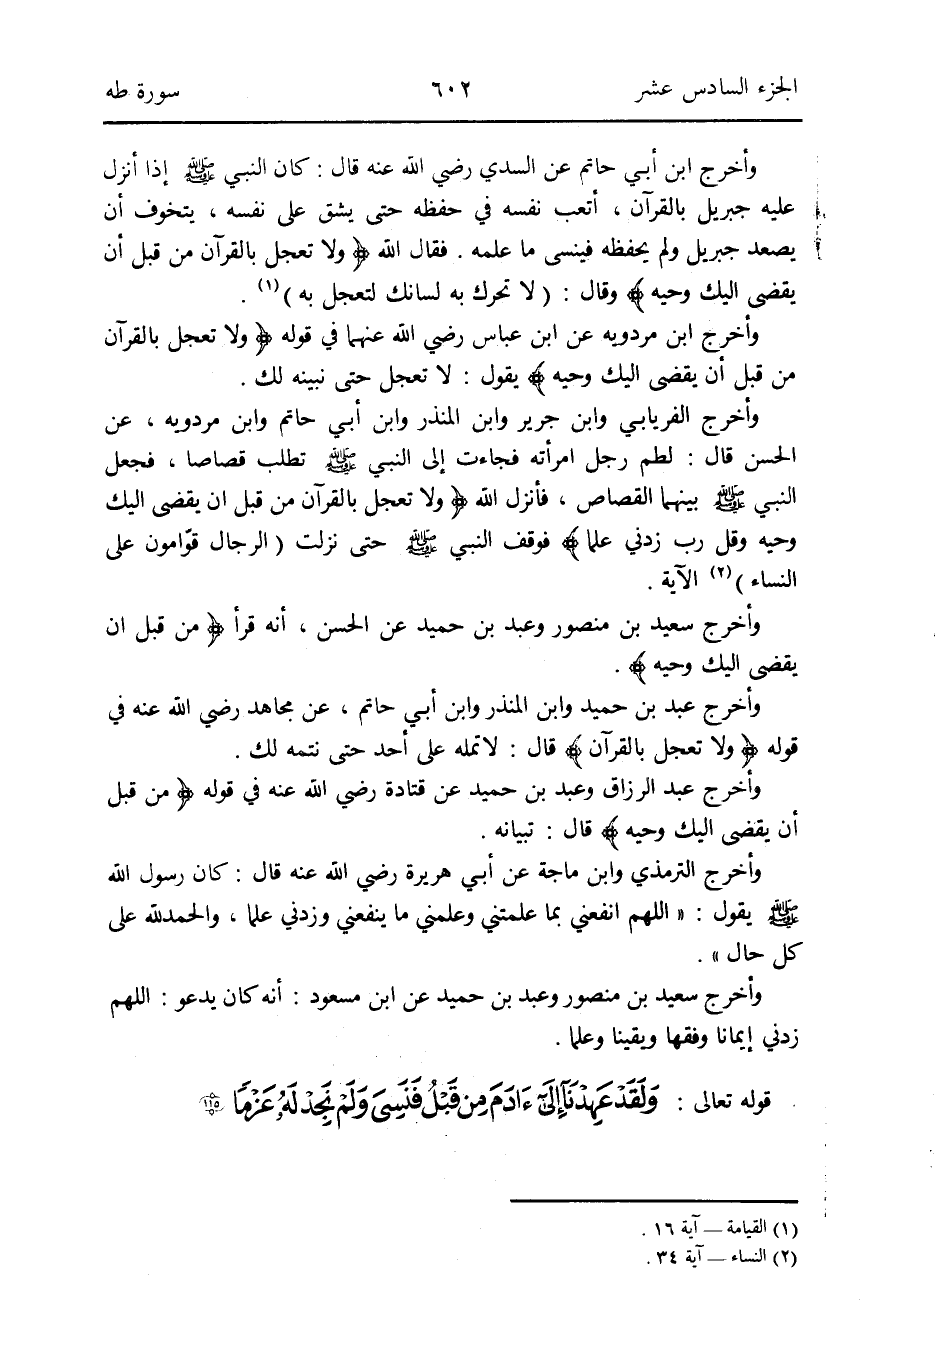 الجزء السادس عشر ٦٠٢ سورة طه
وأخرج ابن أبي حاتم عن السدي رضي الله عنه قال : كان النبي ﷺ إذا أنزل
عليه جبريل بالقرآن ، أتعب نفسه في حفظه حتى يشق على نفسه ، يتخوف أن
يصعد جبريل ولم يحفظه فينسى ما علمه . فقال الله ﴿ ولا تعجل بالقرآن من قبل أن
يقضى اليك وحيه ﴾ وقال : ( لا تحرك به لسانك لتعجل به )(١) .
وأخرج ابن مردويه عن ابن عباس رضي الله عنهما في قوله ﴿ ولا تعجل بالقرآن
من قبل أن يقضى اليك وحيه ﴾ يقول : لا تعجل حتى نبينه لك .
وأخرج الفريابي وابن جرير وابن المنذر وابن أبي حاتم وابن مردويه ، عن
الحسن قال : لطم رجل امرأته فجاءت إلى النبي ﷺ تطلب قصاصا ، فجعل
النبي ﷺ بينهما القصاص ، فأنزل الله ﴿ ولا تعجل بالقرآن من قبل ان يقضى اليك
وحيه وقل رب زدني علما ﴾ فوقف النبي ﷺ حتى نزلت ( الرجال قوّامون على
النساء )(٢) الآية .
وأخرج سعيد بن منصور وعبد بن حميد عن الحسن ، أنه قرأ ﴿ من قبل ان
يقضى اليك وحيه ﴾ .
وأخرج عبد بن حميد وابن المنذر وابن أبي حاتم ، عن مجاهد رضي الله عنه في
قوله ﴿ ولا تعجل بالقرآن ﴾ قال : لا تمله على أحد حتى نتمه لك .
وأخرج عبد الرزاق وعبد بن حميد عن قتادة رضي الله عنه في قوله ﴿ من قبل
أن يقضى اليك وحيه ﴾ قال : تبيانه .
وأخرج الترمذي وابن ماجة عن أبي هريرة رضي الله عنه قال : كان رسول الله
ﷺ يقول : « اللهم انفعني بما علمتني وعلمني ما ينفعني وزدني علما ، والحمدلله على
كل حال » .
وأخرج سعيد بن منصور وعبد بن حميد عن ابن مسعود : أنه كان يدعو : اللهم
زدني إيمانا وفقها ويقينا وعلما .
قوله تعالى : وَلَقَدْ عَهِدْنَآ إِلَىٰٓ ءَادَمَ مِن قَبْلُ فَنَسِىَ وَلَمْ نَجِدْ لَهُۥ عَزْمًا ۝١١٥
(١) القيامة ــ آية ١٦ .
(٢) النساء ــ آية ٣٤ .